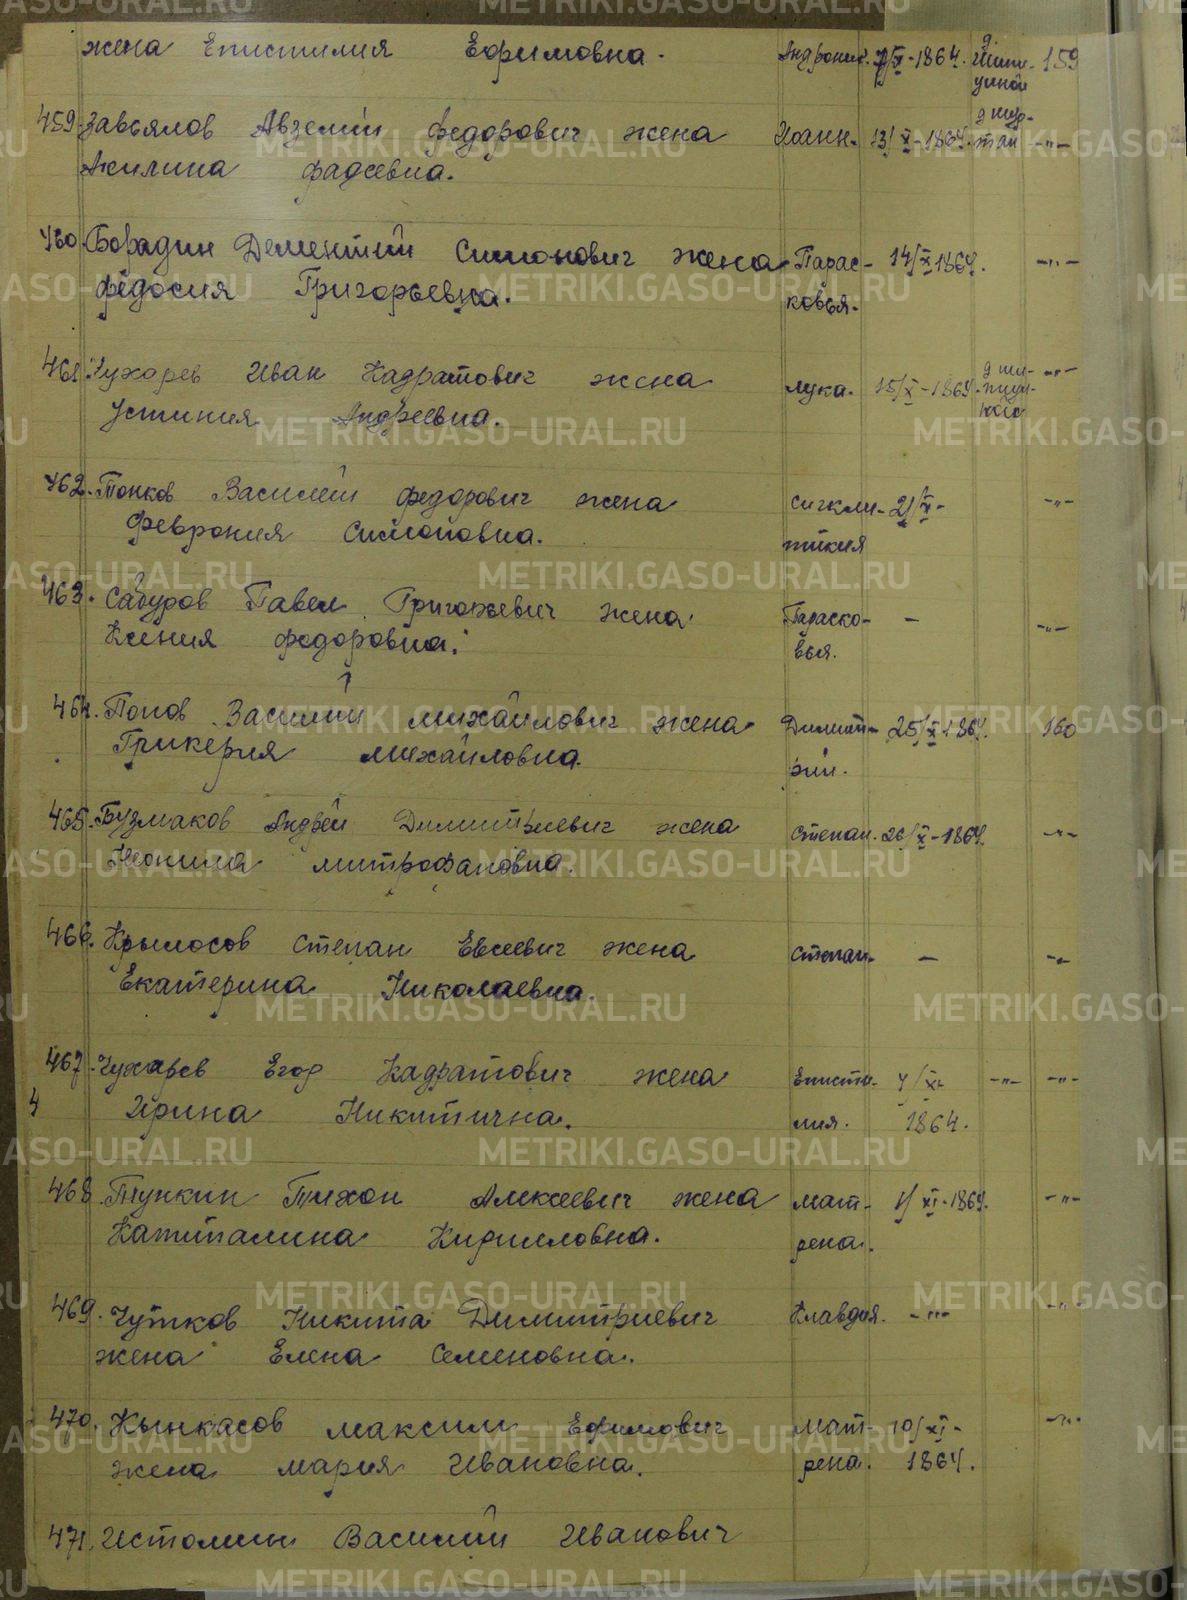 жена Епистилия Ефимовна. Андроник. 7/X-1864. д 159
459. Завьялов Авземий федорович жена Иоанн. 13/X-1864. -"-
Акилина фадеевна.
460. Бородин Дементий Симонович жена Парас- 14/X 1864. -"-
федосия Григорьевна. ковья.
461. Чухарев Иван Кадратович жена лука. 15/X-1864. -"-
Устиния Андреевна.
462. Попков Василий федорович жена сигкли- 21/X- -"-
Феврония Симоновна. тикия
463. Сабуров Павел Григорьевич жена Параско- - -"-
Ксения федоровна. вья.
464. Попов Василий михайлович жена Димит- 25/X 1864. 160
Гликерия михайловна. рий.
465. Бузмаков Андрей Димитриевич жена степан. 26/X-1864. -"-
Неонила митрофановна.
466. Крылосов Степан Евсеевич жена степан. - -"-
Екатерина Николаевна.
467. Чухарев Егор Кадратович жена Еписти- 4/XI- -"- -"-
Ирина Никитична. лия. 1864.
468. Тункин Тихон Алексеевич жена мат- 1/XI-1864. -"-
Капиталина Кирилловна. рена.
469. Чутков Никита Димитриевич Клавдия. -"- -"-
жена Елена Семеновна.
470. Кынкасов максим Ефимович мат- 10/XI- -"-
жена мария Ивановна. рена. 1864.
471. Истомин Василий Иванович
METRIKI.GASO-URAL.RU